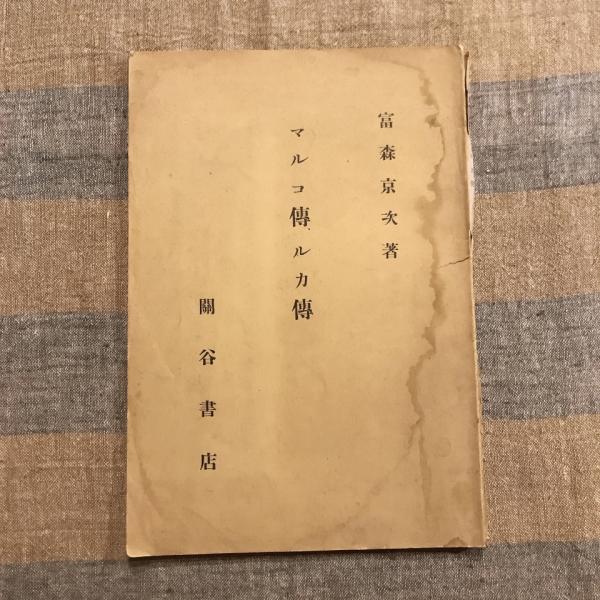 富森京次著
マルコ傳、ルカ傳
關谷書店